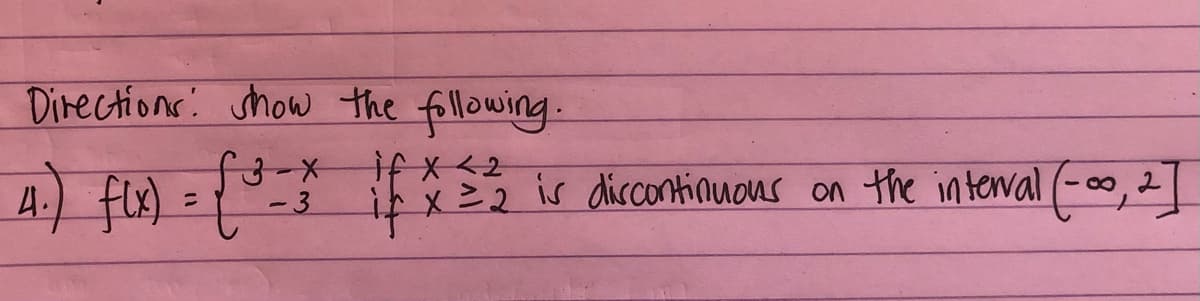 Directions: show the following.
4.) f(x) = { 3-x if x < 2
-3 if x ≥ 2 is discontinuous on the interval (-∞, 2]